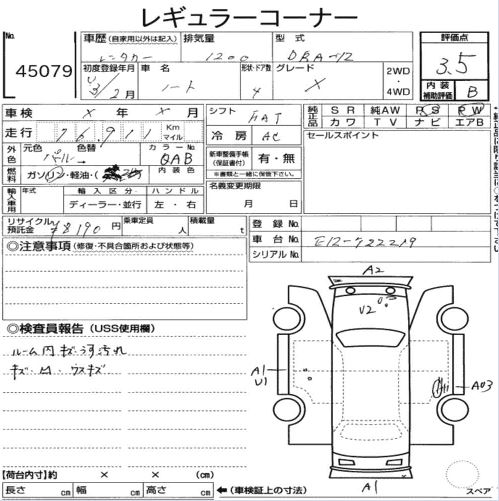 レギュラーコーナー
出品No.
45079
車歴(自家用以外は記入)
レンタカー
排気量
1200
型式
DBA-
評価点
3.5
初度登録年月
2月
車名
ノート
形状・ドア数
4
グレード
X
2WD
・
4WD
内装
補助評価
B
車検 X年X月
走行 76911 Km マイル
シフト FAT
冷房 AC
純正品 SR 純AW PS PW
カワ TV ナビ エアB
セールスポイント
外色 元色 色替 カラーNo.
パール→ QAB
燃料 ガソリン・軽油・( ) 内装色
新車整備手帳(保証書付) 有・無
※書類と一緒に保管下さい。
輸入車用 年式 輸入区分 ハンドル
ディーラー・並行 左・右
名義変更期限
月 日
リサイクル預託金 ¥8190円
乗車定員 人
積載量 t
登録No.
車台No. E12-722219
シリアルNo.
◎注意事項(修復・不具合箇所および状態等)
◎検査員報告(USS使用欄)
ルーム内キズ・汚れ
キズ・凹・ウスキズ
A2
V2
A1
U1
A03
A1
スペア
【荷台内寸】約 × × (cm)
長さ cm 幅 cm 高さ cm ←(車検証上の寸法)